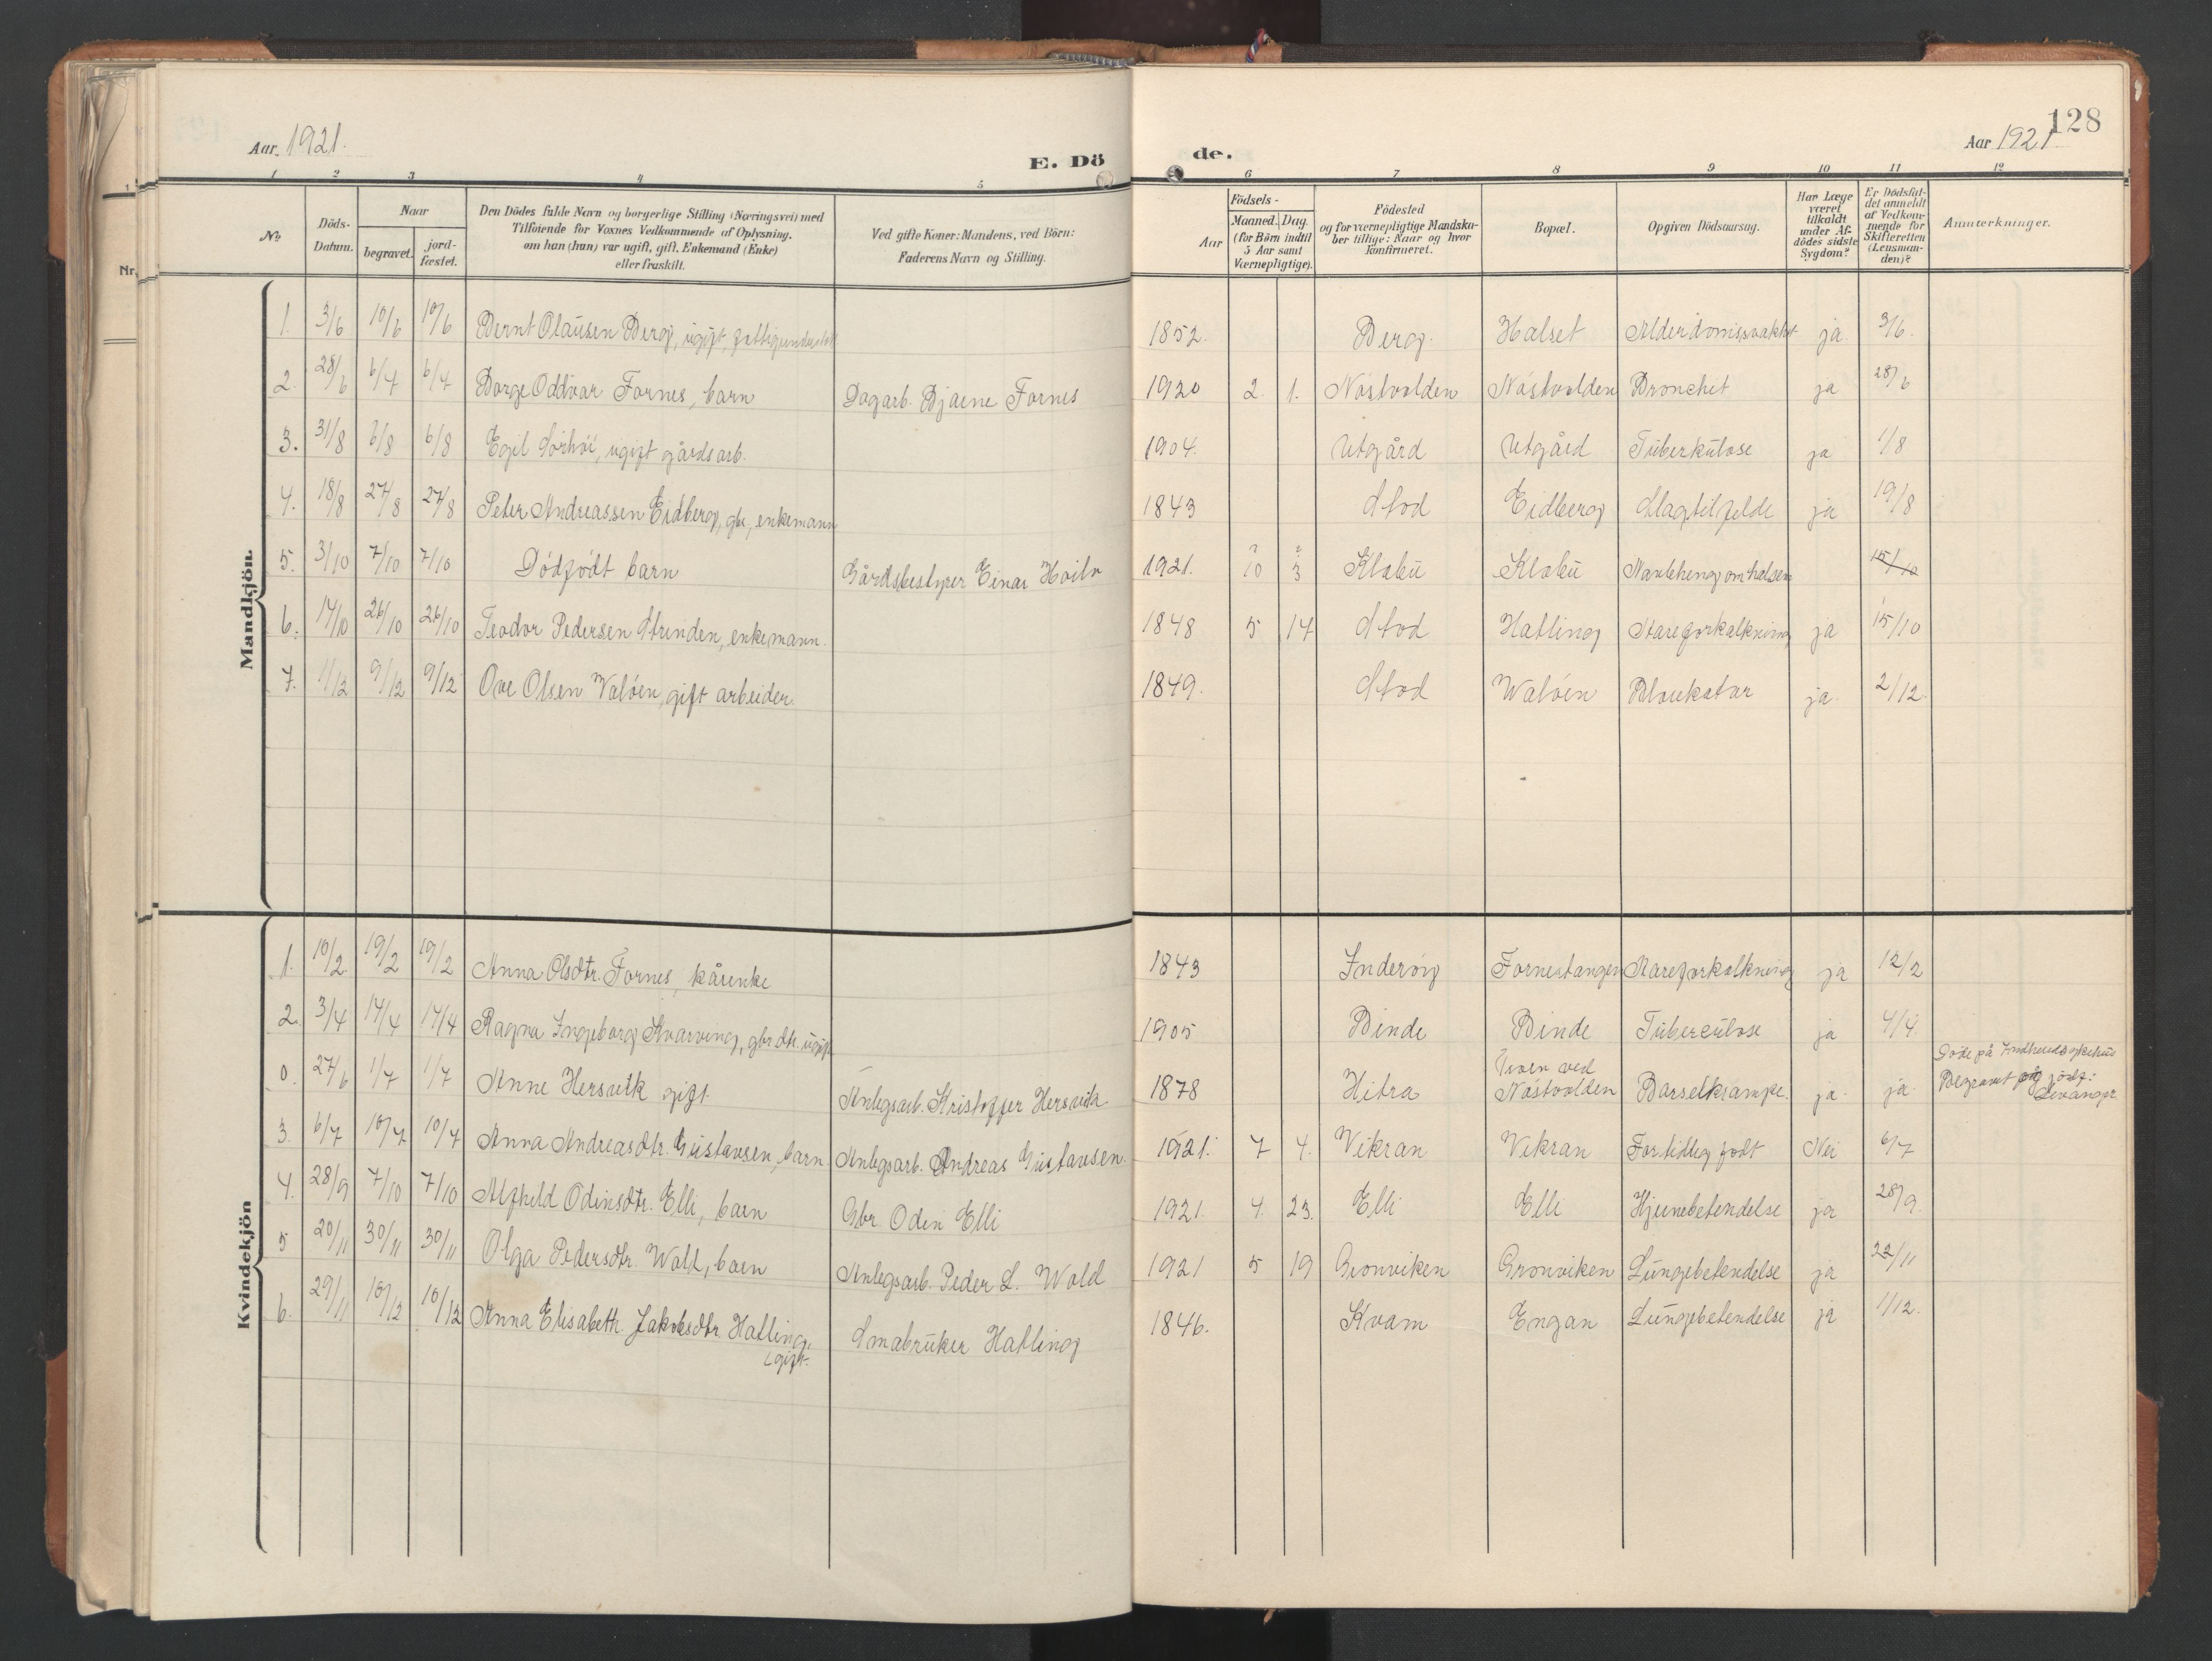 128
Aar 1921.
E. Dö
de.
Aar 1921
1 2 3 4 5 6 7 8 9 10 11 12
No.
Döds-Datum.
Naar
begravet.
jord-fæstet.
Den Dödes fulde Navn og borgerlige Stilling (Næringsvei) med
Tilföiende for Voxnes Vedkommende af Oplysning,
om han (hun) var ugift, gift, Enkemand (Enke)
eller fraskilt.
Ved gifte Koner: Mandens, ved Börn:
Faderens Navn og Stilling.
Födsels-
Aar
Maaned. Dag.
(for Börn indtil
5 Aar samt
Værnepligtige).
Födested
og for værnepligtige Mandska-
ber tillige: Naar og hvor
konfirmeret.
Bopæl.
Opgiven Dödsaarsag.
Har Læge
været
tilkaldt
under Af-
dödes sidste
Sygdom?
Er Dödsfal-
det anmeldt
af Vedkom-
mende for
Skifteretten
(Lensman-
den)?
Anmerkninger.
Nr.
Mandkjön.
1. 3/6 10/6 10/6 Bernt Olausen Berg, ugift, 1852. Berg. Halset ja. 3/6.
2. 28/6 6/7 6/7 Borge Oddvar Fornes, barn Dagarb. Bjarne Fornes 1920 2. 1. Nóstvolden Nóstvolden Bronchit ja 28/6
3. 31/8 6/8 6/8 Egil Sórhói, ugift gårdsarb. 1904. Utgård Utgård Tuberkulose ja 1/8
4. 18/8 27/8 27/8 Peter Andreassen Eidberg, gbr, enkemann 1843 Stod Eidberg Slagtilfelde ja 19/8
5. 3/10 7/10 7/10 Dódfódt barn Gårdsbestyrer Einar 1921. 10 3 Klæbu Klæbu Navlehengomhalsen 15/10
6. 14/10 26/10 26/10 Teodor Pedersen Strinden, enkemann. 1848 5 17 Stod Hatling Åreforkalkning ja 15/10
7. 1/12 9/12 9/12 Ove Olsen Walóen, gift arbeider. 1849. Stod Walóen Blærekatar ja. 2/12.
Kvindekjön
1. 10/2 19/2 19/2 Anna Olsdtr. Fornes, kårenke 1843 Inderóy Fornestangen Åreforkalkning ja 12/2
2. 3/4 14/4 14/4 Ragna Ingeborg Kvarving, gbr.dtr. ugift 1905 Binde Binde Tuberculose ja 4/4.
0. 27/6 1/7 1/7 Anne Hersvik gift. Anlegsarb. Kristoffer Hersvik 1878 Hitra ved
Nóstvolden Barselkrampe. ja. ja. Dóde på Indherredssykehus
Begravet og jódf:
Levanger.
3. 6/7 10/7 10/7 Anna Andreasdtr. Gustavsen, barn. Anlegsarb. Andreas Gustavsen. 1921. 7 4. Vikran Vikran Fortidlig fódt Nei 6/7
4. 28/9 7/10 7/10 Alfhild Odinsdtr. Elli, barn Gbr. Odin Elli 1921. 4. 23. Elli Elli Hjernebetendelse ja 28/9.
5 20/11 30/11 30/11 Olga Pedersdtr. Wold, barn Anlegsarb. Peder L. Wold 1921 5 19 Grónviken Grónviken Lungebetendelse ja 22/11
6. 29/11 10/12 10/12 Anna Elisabeth Jakobsdtr. Hatling,
gift. Småbruker Hatling 1846. Kvam Engan Lungebetendelse ja 1/12.